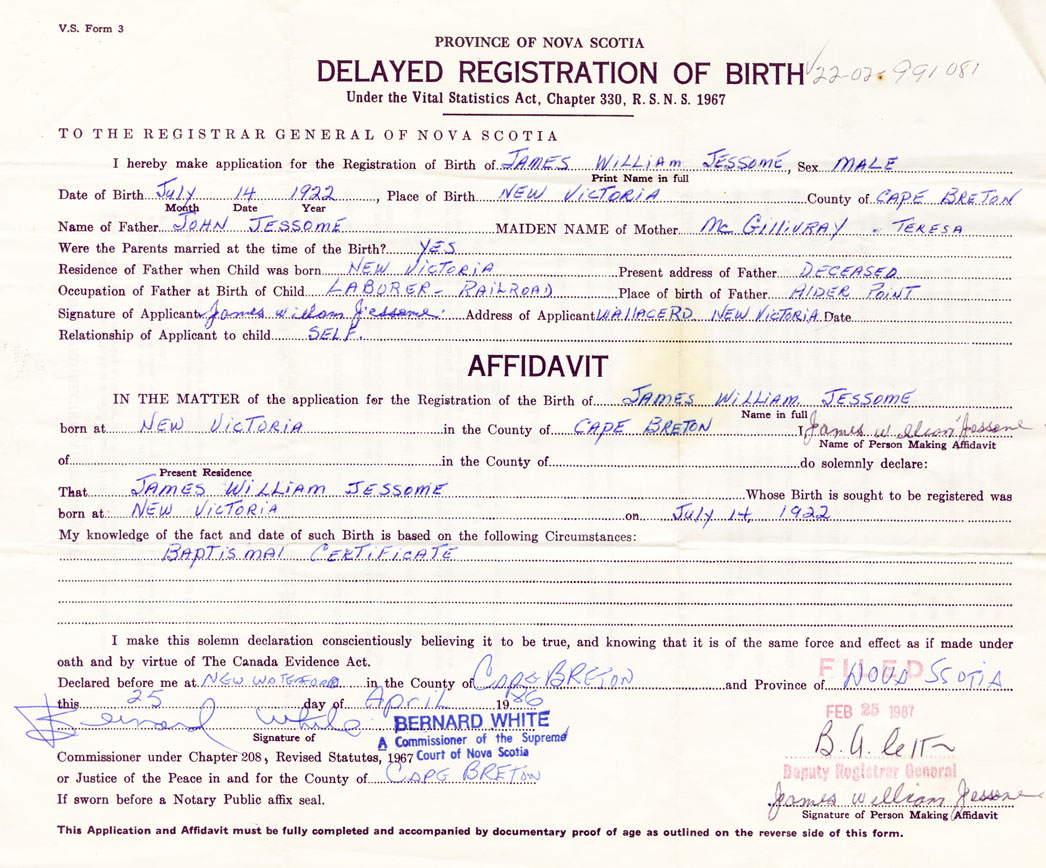 V.S. Form 3
PROVINCE OF NOVA SCOTIA
DELAYED REGISTRATION OF BIRTH 22-02-991081
Under the Vital Statistics Act, Chapter 330, R. S. N. S. 1967
TO THE REGISTRAR GENERAL OF NOVA SCOTIA
I hereby make application for the Registration of Birth of JAMES WILLIAM JESSOME, Sex MALE
Print Name in full
Date of Birth July 14 1922, Place of Birth NEW VICTORIA County of CAPE BRETON
Month Date Year
Name of Father JOHN JESSOME MAIDEN NAME of Mother Mc GILLIVRAY - TERESA
Were the Parents married at the time of the Birth? YES
Residence of Father when Child was born NEW VICTORIA Present address of Father DECEASED
Occupation of Father at Birth of Child LABORER - RAILROAD Place of birth of Father AIDER POINT
Signature of Applicant James William Jessome Address of Applicant WALLACE RD NEW VICTORIA Date
Relationship of Applicant to child SELF.
AFFIDAVIT
IN THE MATTER of the application for the Registration of the Birth of JAMES WILLIAM JESSOME
Name in full
born at NEW VICTORIA in the County of CAPE BRETON I James William Jessome
Name of Person Making Affidavit
of in the County of do solemnly declare:
Present Residence
That JAMES WILLIAM JESSOME Whose Birth is sought to be registered was
born at NEW VICTORIA on July 14, 1922
My knowledge of the fact and date of such Birth is based on the following Circumstances:
BAPTISMAL CERTIFICATE
I make this solemn declaration conscientiously believing it to be true, and knowing that it is of the same force and effect as if made under
oath and by virtue of The Canada Evidence Act.
FILED
Declared before me at NEW WATERFORD in the County of CAPE BRETON and Province of NOVA SCOTIA
this 25 day of April 1986
FEB 25 1987
Bernard White
BERNARD WHITE
A Commissioner of the Supreme
Court of Nova Scotia
Signature of
Commissioner under Chapter 208, Revised Statutes, 1967
B. A.
Deputy Registrar General
or Justice of the Peace in and for the County of CAPE BRETON
James William Jessome
If sworn before a Notary Public affix seal.
Signature of Person Making Affidavit
This Application and Affidavit must be fully completed and accompanied by documentary proof of age as outlined on the reverse side of this form.